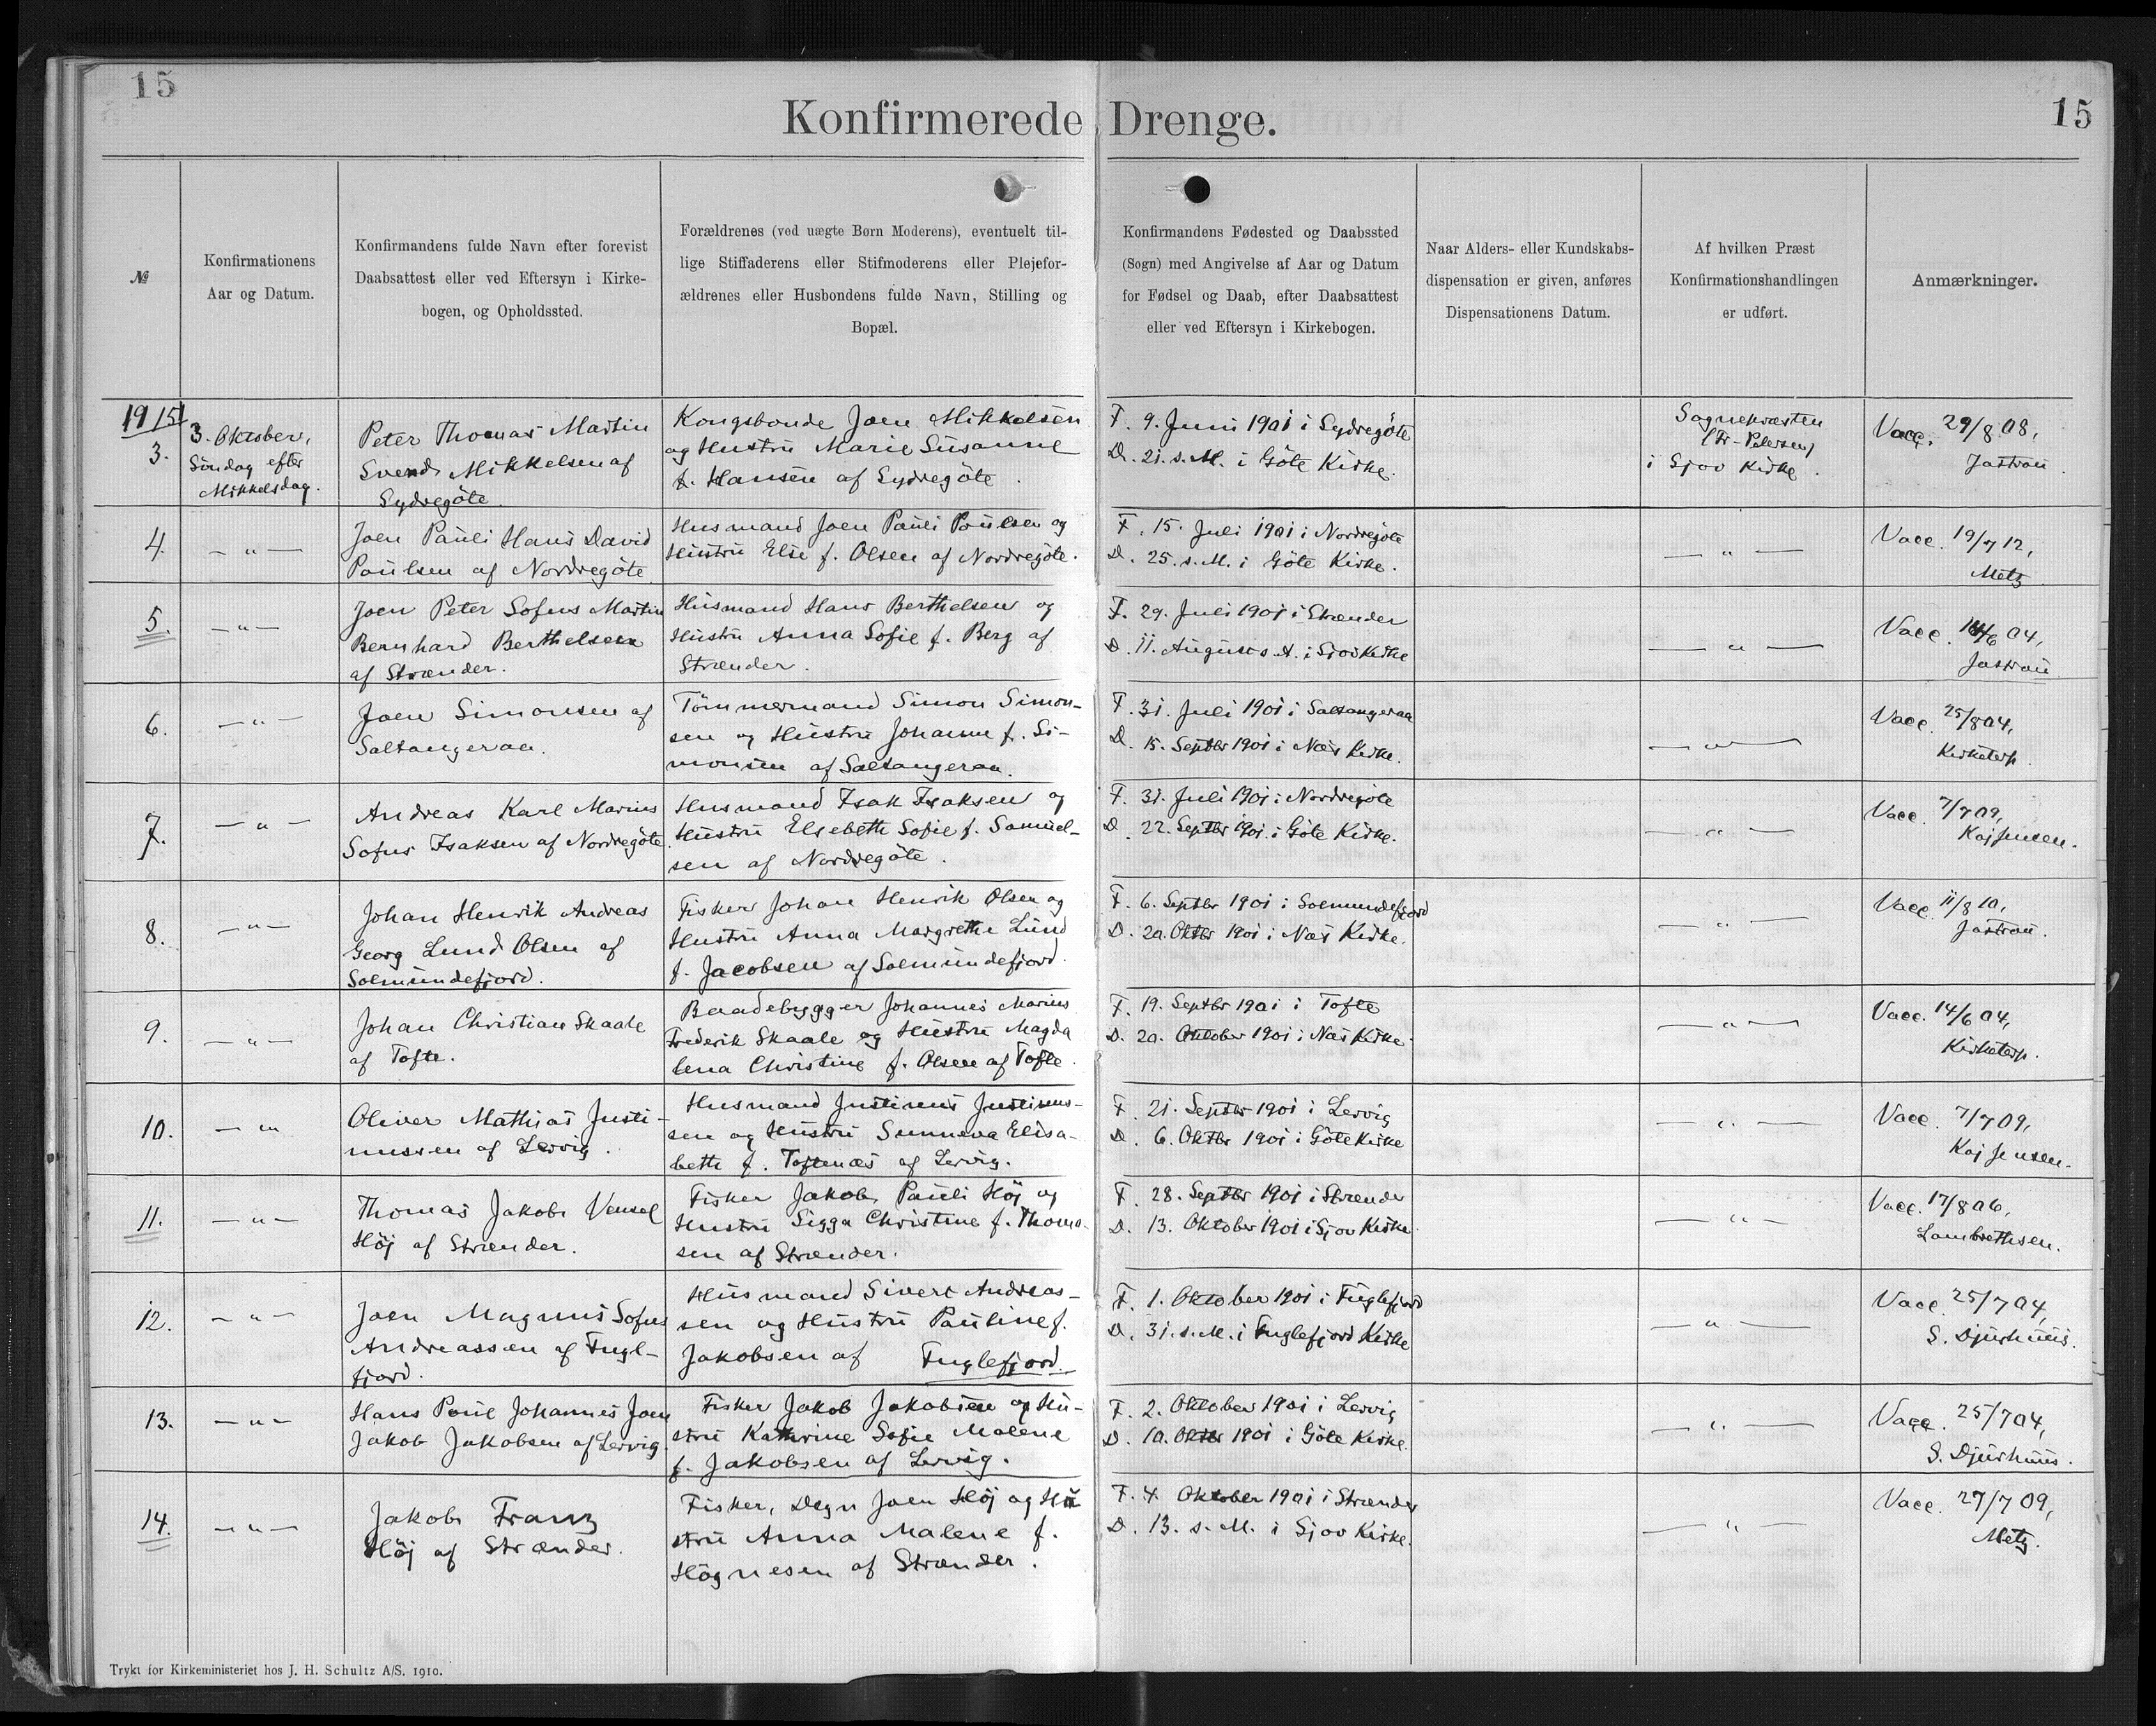 15
15
Konfirmerede Drenge.
№
Konfirmationens
Aar og Datum.
Konfirmandens fulde Navn efter forevist
Daabsattest eller ved Eftersyn i Kirke-
bogen, og Opholdssted.
Forældrenes (ved uægte Børn Moderens), eventuelt til-
lige Stiffaderens eller Stifmoderens eller Plejefor-
ældrenes eller Husbondens fulde Navn, Stilling og
Bopæl.
Konfirmandens Fødested og Daabssted
(Sogn) med Angivelse af Aar og Datum
for Fødsel og Daab, efter Daabsattest
eller ved Eftersyn i Kirkebogen.
Naar Alders- eller Kundskabs-
dispensation er given, anføres
Dispensationens Datum.
Af hvilken Præst
Konfirmationshandlingen
er udført.
Anmærkninger.
1915
3.
3. Oktober,
Söndag efter
Mikkelsdag.
Peter Thomas Martin
Svend Mikkelsen af
Sydregöte.
Kongsbonde Joen Mikkelsen
og Hustru Marie Susanne
f. Hansen af Sydregöte.
F. 9. Juni 1901 i Sydregöte
D. 21. s. M. i Göte Kirke.
Sognepræsten
(Fr. Petersen)
i Sjov Kirke.
Vacc. 29/8 08,
Jastrau.
4.
- " -
Joen Pauli Hans David
Poulsen af Nordregöte.
Husmand Joen Pauli Poulsen og
Hustru Else f. Olsen af Nordregöte.
F. 15. Juli 1901 i Nordregöte
D. 25. s. M. i Göte Kirke.
- " -
Vacc. 19/7 12,
Metz
5.
- " -
Joen Peter Sofus Martin
Bernhard Berthelsen
af Strænder.
Husmand Hans Berthelsen og
Hustru Anna Sofie f. Berg af
Strænder.
F. 29. Juli 1901 i Strænder
D. 11. August s. A. i Sjov Kirke
- " -
Vacc. 14/6 04,
Jastrau.
6.
- " -
Joen Simonsen af
Saltangeraa.
Tömmermand Simon Simon-
sen og Hustru Johanne f. Si-
monsen af Saltangeraa.
F. 31. Juli 1901 i Saltangeraa
D. 15. Septbr 1901 i Næs Kirke.
- " -
Vacc. 25/8 04,
Kirketerp.
7.
- " -
Andreas Karl Marius
Sofus Isaksen af Nordregöte.
Husmand Isak Isaksen og
Hustru Elsebeth Sofie f. Samuel-
sen af Nordregöte.
F. 31. Juli 1901 i Nordregöte
D. 22. Septbr 1901 i Göte Kirke.
- " -
Vacc. 7/7 09,
Kaj Jensen.
8.
- " -
Johan Henrik Andreas
Georg Lund Olsen af
Solmundefjord.
Fisker Johan Henrik Olsen og
Hustru Anna Margrethe Lund
f. Jacobsen af Solmundefjord.
F. 6. Septbr 1901 i Solmundefjord
D. 20. Oktbr 1901 i Næs Kirke.
- " -
Vacc. 11/8 10,
Jastrau.
9.
- " -
Johan Christian Skaale
af Tofte.
Baadebygger Johannes Marius
Frederik Skaale og Hustru Magda
lena Christine f. Olsen af Tofte.
F. 19. Septbr 1901 i Tofte
D. 20. Oktober 1901 i Næs Kirke.
- " -
Vacc. 14/6 04,
Kirketerp.
10.
- " -
Oliver Mathias Justi-
nussen af Lervig.
Husmand Justinus Justinus-
sen og Hustru Sunneva Elisa-
beth f. Toftenæs af Lervig.
F. 21. Septbr 1901 i Lervig
D. 6. Oktbr 1901 i Göte Kirke
- " -
Vacc. 7/7 09,
Kaj Jensen.
11.
- " -
Thomas Jakob Vensel
Höj af Strænder.
Fisker Jakob Pauli Höj og
Hustru Sigga Christine f. Thoma-
sen af Strænder.
F. 28. Septbr 1901 i Strænder
D. 13. Oktober 1901 i Sjov Kirke.
- " -
Vacc. 17/8 06,
Lambrethsen.
12.
- " -
Joen Magnus Sofus
Andreassen af Fugl-
fjord.
Husmand Sivert Andreas-
sen og Hustru Pauline f.
Jakobsen af Fuglefjord.
F. 1. Oktober 1901 i Fuglefjord
D. 31. s. M. i Fuglefjord Kirke
- " -
Vacc. 25/7 04,
S. Djurhuus.
13.
- " -
Hans Poul Johannes Joen
Jakob Jakobsen af Lervig.
Fisker Jakob Jakobsen og Hu-
stru Kathrine Sofie Malene
f. Jakobsen af Lervig.
F. 2. Oktober 1901 i Lervig
D. 10. Oktbr 1901 i Göte Kirke.
- " -
Vacc. 25/7 04,
S. Djurhuus.
14.
- " -
Jakob Franz
Höj af Strænder.
Fisker, Degn Joen Höj og Hu
stru Anna Malene f.
Högnesen af Strænder.
F. 4. Oktober 1901 i Strænder
D. 13. s. M. i Sjov Kirke.
- " -
Vacc. 27/7 09,
Metz.
Trykt for Kirkeministeriet hos J. H. Schultz A/S. 1910.